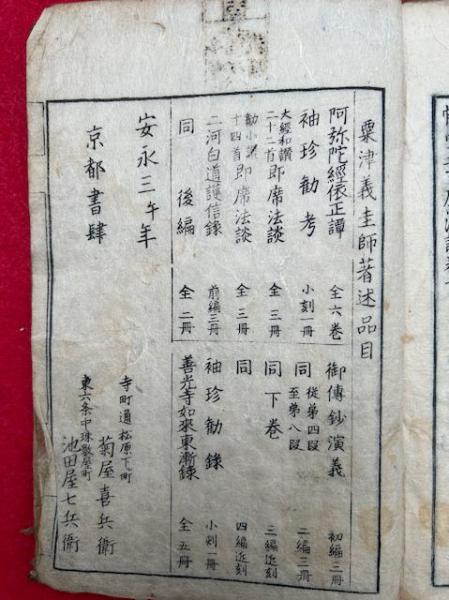 粟津義圭師著述品目
阿弥陀經依正譚 全六巻
袖珍勧考 小刻一冊
大經和讃二十二首即席法談 全三冊
勧小讃十四首即席法談 全三冊
二河白道護信録 前編三冊
同後編 全二冊
御傳鈔演義 初編三冊
同從第四段至第八段 二編三冊
同下巻 三編近刻
同 四編近刻
袖珍勧録 小刻一冊
善光寺如來東漸録 全五冊
安永三午年
京都書肆
寺町通松原下ル町
菊屋喜兵衛
東六条中珠数屋町
池田屋七兵衛